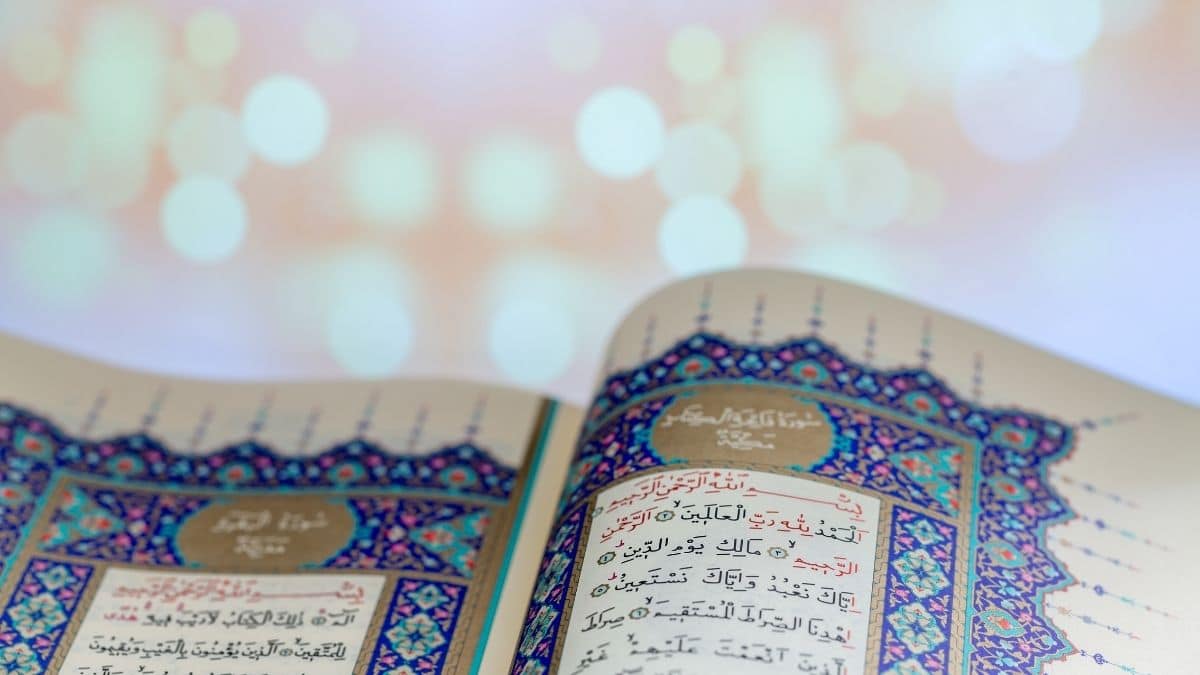 سُورَةُ فَاتِحَةِ الْكِتَابِ
مَكِّيَّةٌ
بِسْمِ اللّٰهِ الرَّحْمٰنِ الرَّحِيمِ
اَلْحَمْدُ لِلّٰهِ رَبِّ الْعَالَمِينَۙ ﴿١﴾ اَلرَّحْمٰنِ
الرَّحِيمِۙ ﴿٢﴾ مَالِكِ يَوْمِ الدِّينِۜ ﴿٣﴾
اِيَّاكَ نَعْبُدُ وَاِيَّاكَ نَسْتَعِينُۜ
اِهْدِنَا الصِّرَاطَ الْمُسْتَقِيمَۙ صِرَاطَ
الَّذِينَ اَنْعَمْتَ عَلَيْهِمْ غَيْرِ
سُورَةُ الْبَقَرَةِ
مَدَنِيَّةٌ
بِسْمِ اللّٰهِ الرَّحْمٰنِ الرَّحِيمِ
الٓمٓ ذٰلِكَ الْكِتَابُ لَا رَيْبَ فِيهِ هُدًى
لِلْمُتَّقِينَ اَلَّذِينَ يُؤْمِنُونَ بِالْغَيْبِ وَيُقِيمُونَ